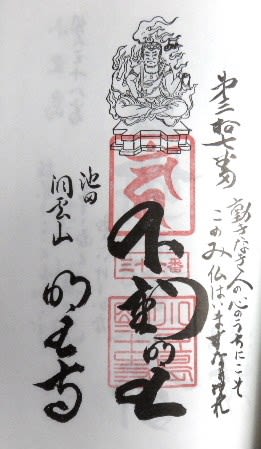 第三拾七番
動きなき人の心のうちにこそ
このみ仏はいますなりけれ
不動明王
池田
洞雲山
明王寺